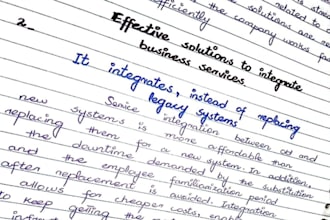 related to
solutions are
efficiently
the company works
2_
Effective solutions to integrate
business services
It integrates, instead of replacing
legacy systems
Service integration between old and
new systems is more affordable than
replacing them for a new system. In addition,
the downtime demanded by the substitution
and the employee familiarization period
after replacement is avoided. Integration
allows for cheaper costs,
to keep getting the